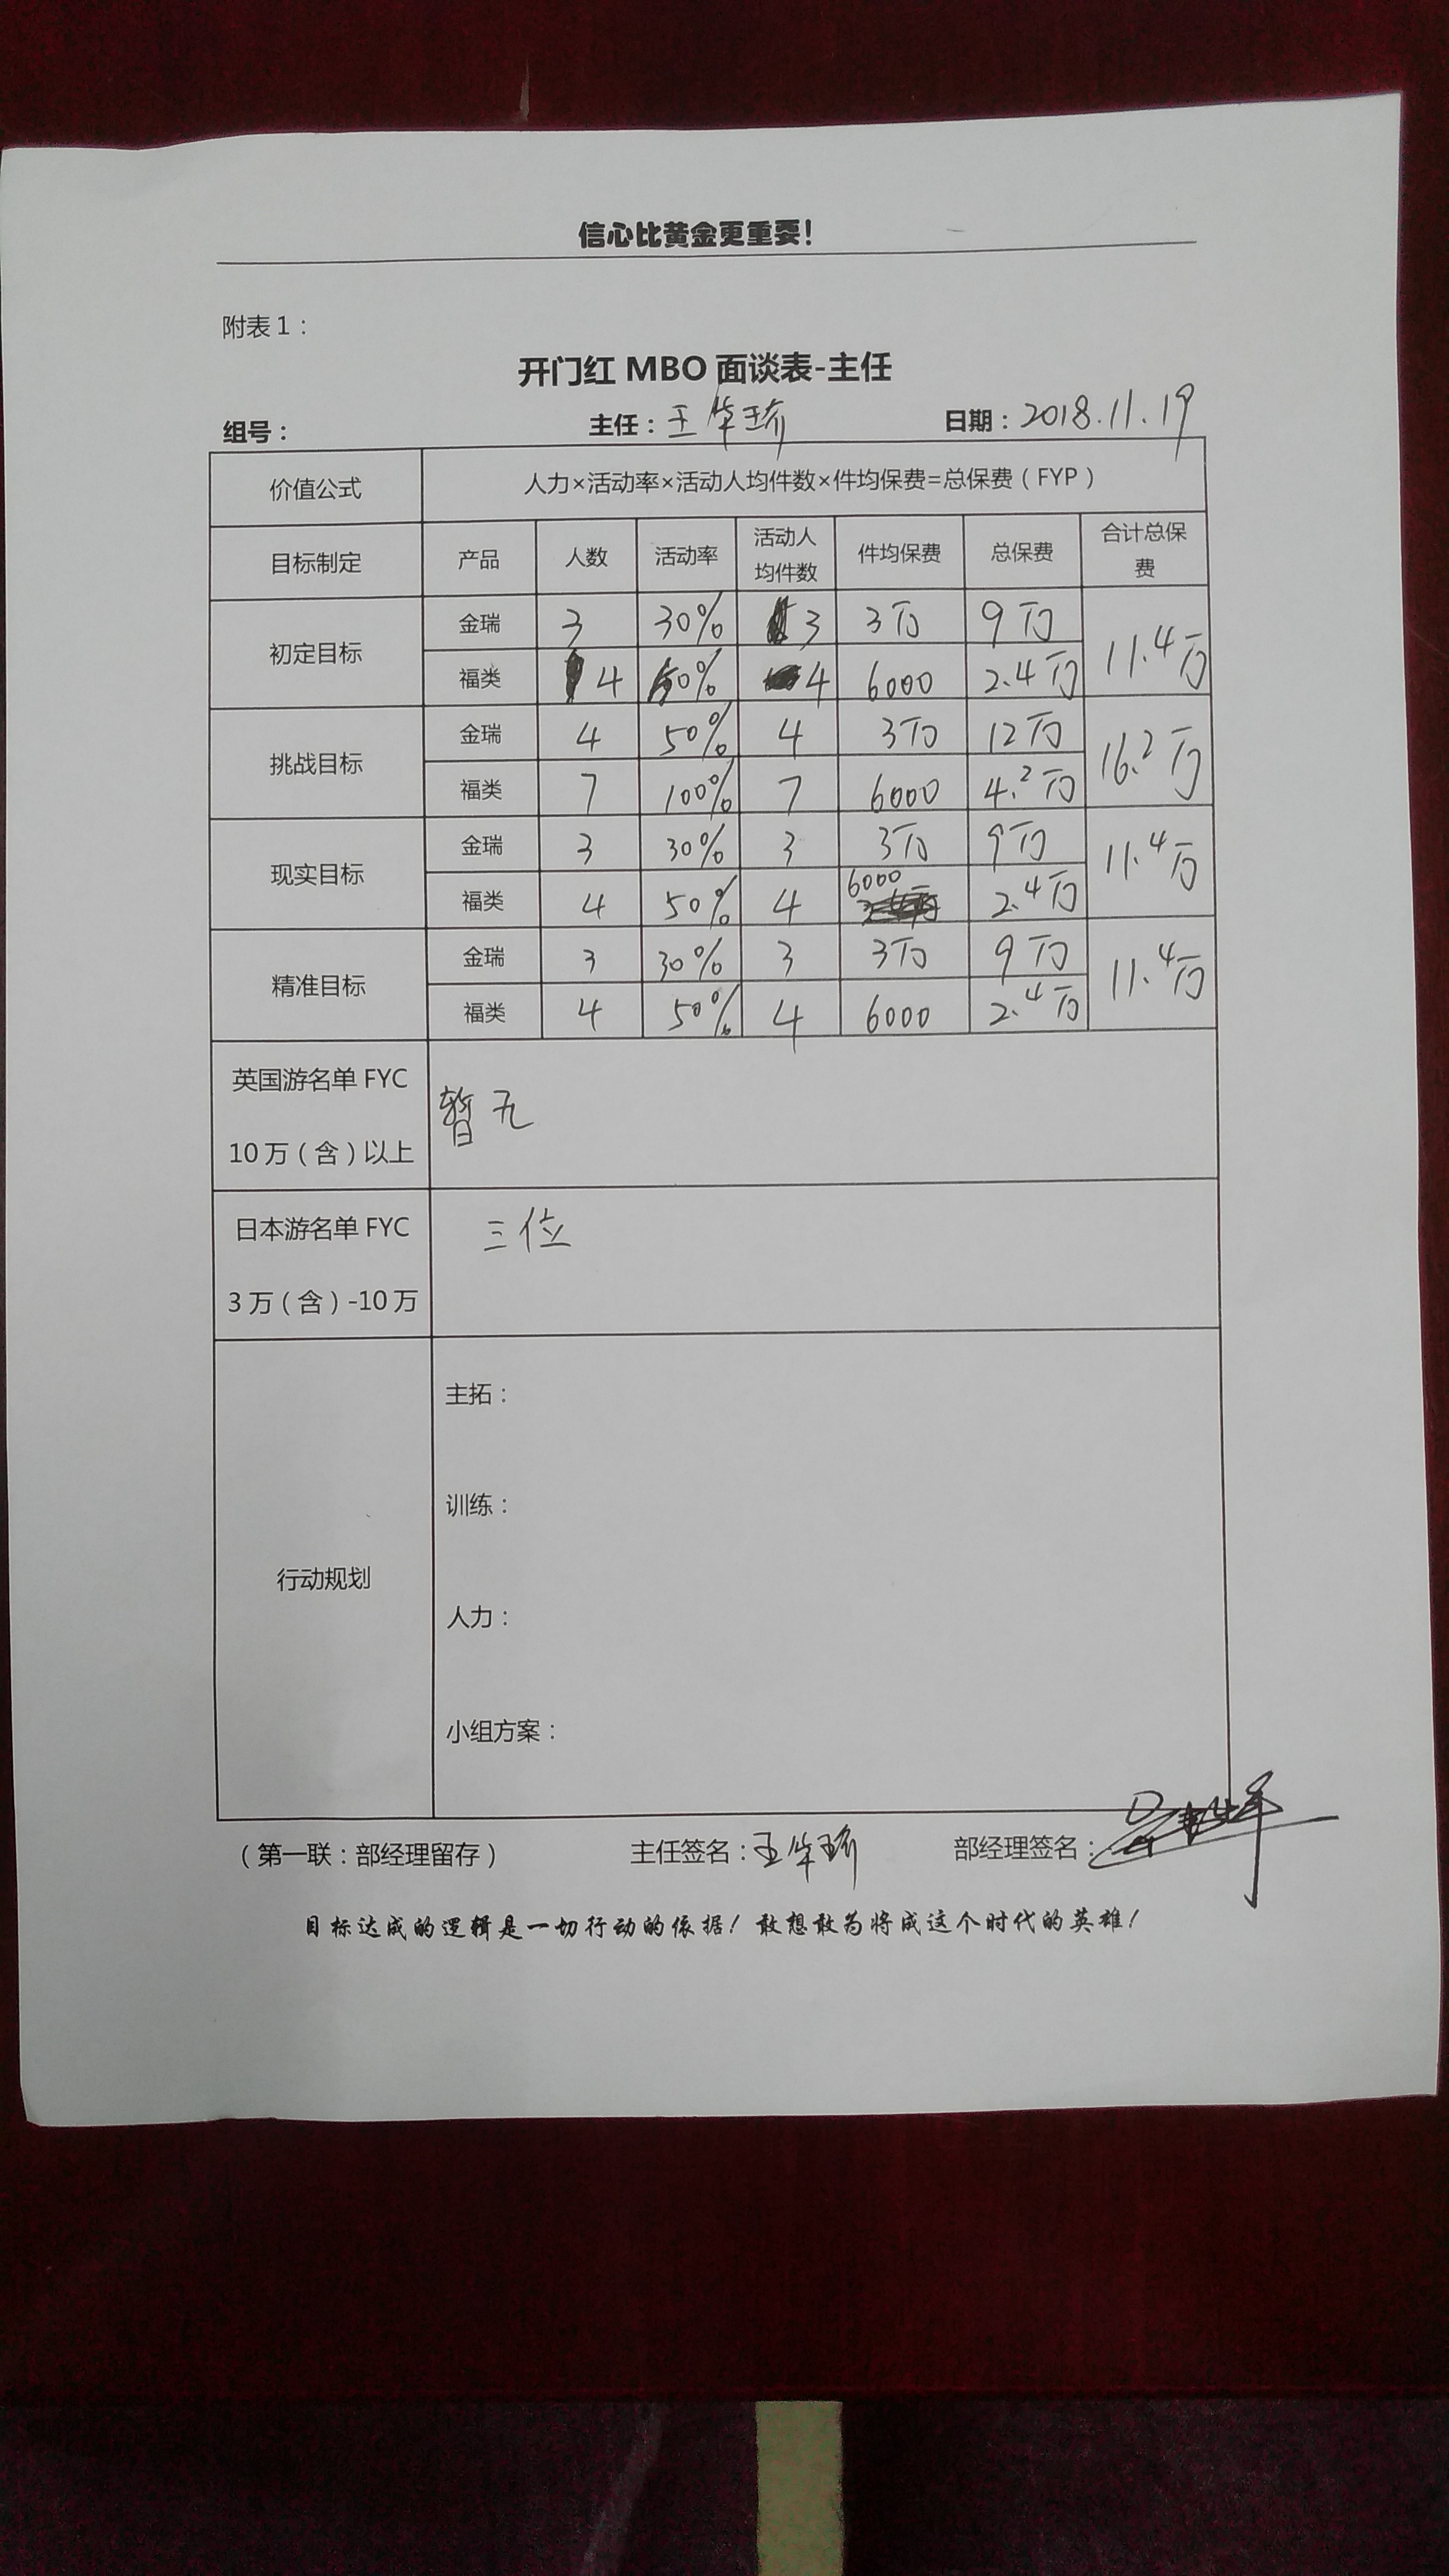 信心比黄金更重要！
附表1：
开门红MBO面谈表-主任
组号： 主任：王华瑜 日期：2018.11.19
价值公式 人力×活动率×活动人均件数×件均保费=总保费（FYP）
目标制定 产品 人数 活动率 活动人均件数 件均保费 总保费 合计总保费
初定目标 金瑞 3 30% 3 3万 9万 11.4万
福类 4 50% 4 6000 2.4万
挑战目标 金瑞 4 50% 4 3万 12万 16.2万
福类 7 100% 7 6000 4.2万
现实目标 金瑞 3 30% 3 3万 9万 11.4万
福类 4 50% 4 6000 2.4万
精准目标 金瑞 3 30% 3 3万 9万 11.4万
福类 4 50% 4 6000 2.4万
英国游名单FYC
10万（含）以上
暂无
日本游名单FYC
3万（含）-10万
三位
行动规划
主拓：
训练：
人力：
小组方案：
（第一联：部经理留存） 主任签名：王华瑜 部经理签名：
目标达成的逻辑是一切行动的依据！敢想敢为将成这个时代的英雄！